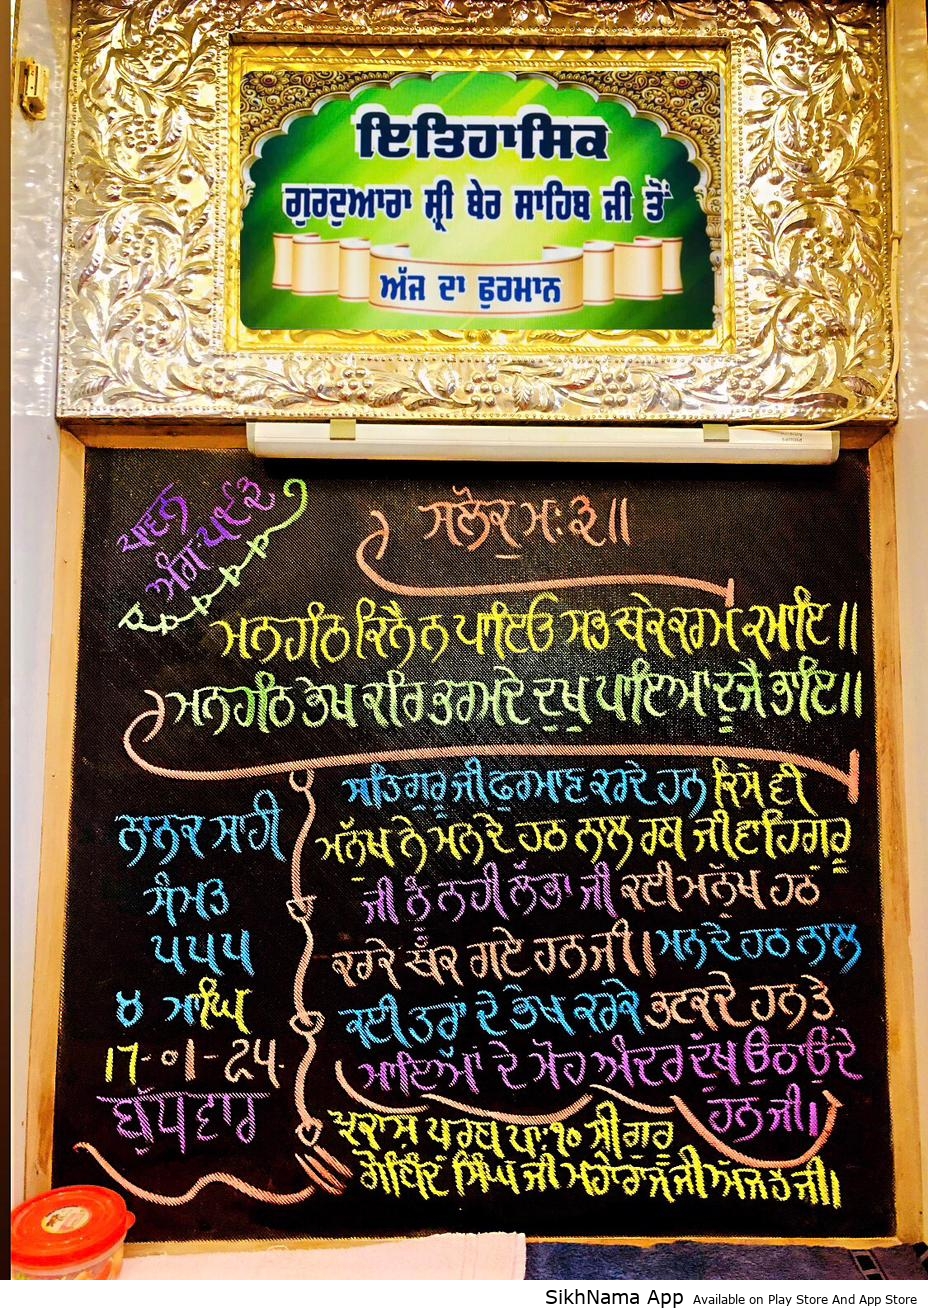 ਇਤਿਹਾਸਿਕ
ਗੁਰਦੁਆਰਾ ਸ੍ਰੀ ਬੇਰ ਸਾਹਿਬ ਜੀ ਤੋਂ
ਅੱਜ ਦਾ ਫੁਰਮਾਨ
ਪਾਵਨ
ਅੰਗ:੫੯੩
ਸਲੋਕੁ ਮ: ੩॥
ਮਨਹਠਿ ਕਿਨੈ ਨ ਪਾਇਓ ਸਭ ਥਕੇ ਕਰਮ ਕਮਾਇ॥
ਮਨਹਠਿ ਭੇਖ ਕਰਿ ਭਰਮਦੇ ਦੁਖੁ ਪਾਇਆ ਦੂਜੈ ਭਾਇ॥
ਨਾਨਕ ਸਾਹੀ
ਸੰਮਤ
੫੫੫
੪ ਮਾਘ
17-01-24
ਬੁੱਧਵਾਰ
ਸਤਿਗੁਰੂ ਜੀ ਫੁਰਮਾਣ ਕਰਦੇ ਹਨ ਕਿਸੇ ਵੀ
ਮਨੁੱਖ ਨੇ ਮਨ ਦੇ ਹਠ ਨਾਲ ਰਬ ਜੀ ਵਾਹਿਗੁਰੂ
ਜੀ ਨੂੰ ਨਹੀ ਲੱਭਾ ਜੀ ਕਈ ਮਨੁੱਖ ਹਠ
ਕਰਕੇ ਥੱਕ ਗਏ ਹਨ ਜੀ॥ ਮਨ ਦੇ ਹਠ ਨਾਲ
ਕਈ ਤਰ੍ਹਾਂ ਦੇ ਭੇਖ ਕਰਕੇ ਭਟਕਦੇ ਹਨ ਤੇ
ਮਾਇਆ ਦੇ ਮੋਹ ਅੰਦਰ ਦੁੱਖ ਉਠਾਉਂਦੇ
ਹਨ ਜੀ॥
ਪ੍ਰਕਾਸ਼ ਪੁਰਬ ਪਾ:੧੦ ਸ੍ਰੀ ਗੁਰੂ
ਗੋਬਿੰਦ ਸਿੰਘ ਜੀ ਮਹਾਰਾਜ ਜੀ ਅੱਜ ਹੈ ਜੀ॥
SikhNama App Available on Play Store And App Store